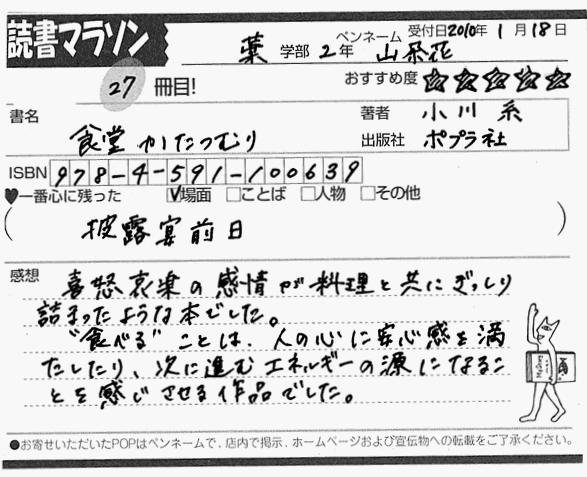 読書マラソン
薬 学部 2年 ペンネーム 山茶花 受付日2010年 1月18日
27 冊目! おすすめ度 ★★★★★
書名 食堂かたつむり
著者 小川 糸
出版社 ポプラ社
ISBN 978-4-591-100639
♥一番心に残った ☑場面 □ことば □人物 □その他
( 披露宴前日 )
感想 喜怒哀楽の感情が料理と共にぎっしり
詰まったような本でした。
"食べる"ことは、人の心に安心感を満
たしたり、次に進むエネルギーの源になるこ
とを感じさせる作品でした。
●お寄せいただいたPOPはペンネームで、店内で掲示、ホームページおよび宣伝物への転載をご了承ください。